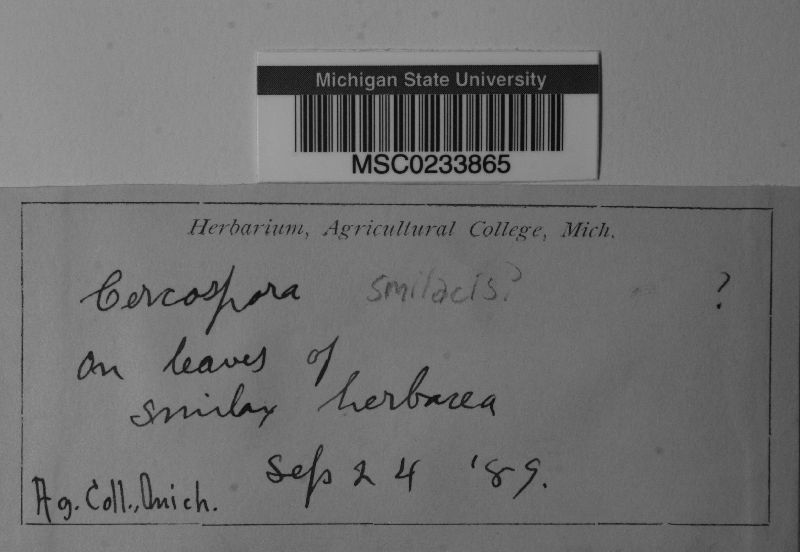 Michigan State University
MSC0233865
Herbarium, Agricultural College, Mich.
Cercospora smilacis? ?
on leaves of
smilax herbacea
Sep 24 '89.
Ag. Coll., Mich.